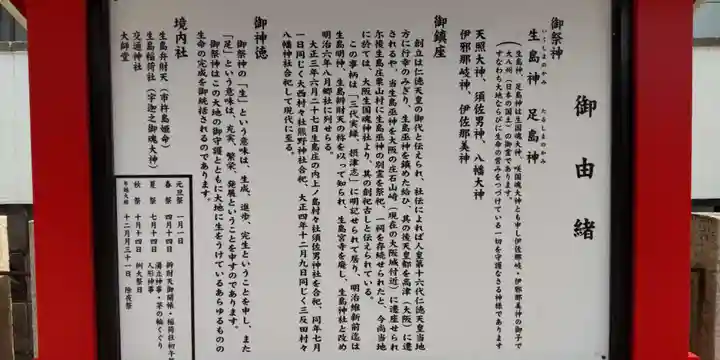 御由緒
御祭神
いくしまのかみ
生島神
たるしまのかみ
足島神
（生島神、足島神は生国魂大神、咲国魂大神とも申し伊邪那岐・伊邪那美神の御子で
大八州（日本の国土）の御霊であります。
すなわち大地ならびに生命の営みをつづけている一切を守護なさる神様であります
天照大神、須佐男神、八幡大神
伊邪那岐神、伊佐那美神
御鎮座
創立は仁徳天皇の御代と伝えられ、社伝によれば人皇第十六代仁徳天皇当地
方に行幸のみぎり、生島巫神を鎮めた給ひ、其の後天皇都を高津（大阪）に遷
されるや、当生島巫神を大阪の庄石山崎（現在の大阪城付近）に遷座せられ
尓後生島庄栗山村に生島巫神の別霊を祭祀、一祠を存続せられたと、今尚当地
に於ては、大阪生国魂神社より、其の創祀古しと伝えられている。
この事柄は「三代実録、摂津志」に明記せられて居り、明治維新前迄は
生島明神、生島辧財天の称を以って知られ、生島宮寺を廃し、生島神社と改め
明治六年八月郷社に列せらる。
大正三年六月二十七日生島庄の内上ノ島村々社須佐男神社を合祀、同年七月
一日同じく大西村々社熊野神社合祀、大正四年十二月九日同じく三反田村々
八幡神社合祀して現代に至る。
御神徳
御祭神の「生」という意味は、生成、進歩、完生ということを申し、また
「足」という意味は、充実、繁栄、発展ということを申すのであります。
御祭神はこの大地の御守護とともに大地に生をうけているあらゆるものの
生命の完成を御統括されるのであります。
境内社
生島弁財天（市杵島姫命）
生島稲荷社（宇迦之御魂大神）
交通神社
大師堂
元旦祭 一月一日
春祭 四月十四日 辧財天御開帳・稲荷社初午祭
夏祭 七月十四日 湯立神事・茅の輪くぐり 人形神事
秋祭 十月十四日 例大祭日
十二月三十一日 除夜祭